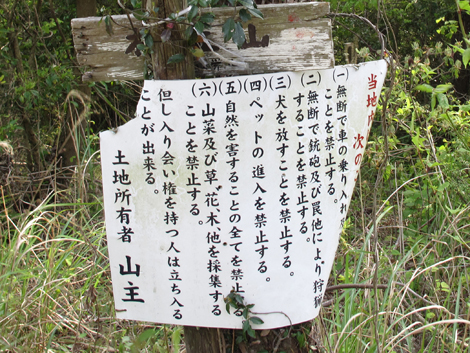 山
当地内 次の
(一)無断で車の乗り入れ
ことを禁止する。
(二)無断で銃砲及び罠他により狩猟
することを禁止する。
(三)犬を放すことを禁止する。
(四)ペットの進入を禁止する。
(五)自然を害することの全てを禁止
(六)山菜及び草、花木、他を採集する
ことを禁止する。
但し入り会い権を持つ人は立ち入る
ことが出来る。
土地所有者 山主